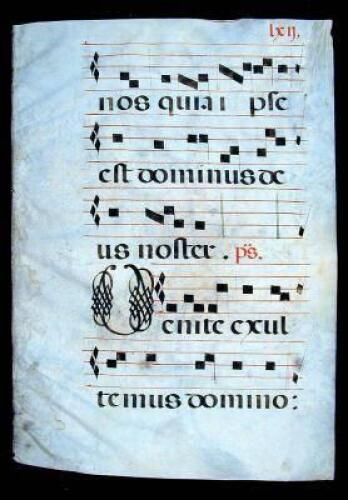 lxij.
nos quia i pse
est dominus de
us noster. ps.
Venite exul
temus domino: